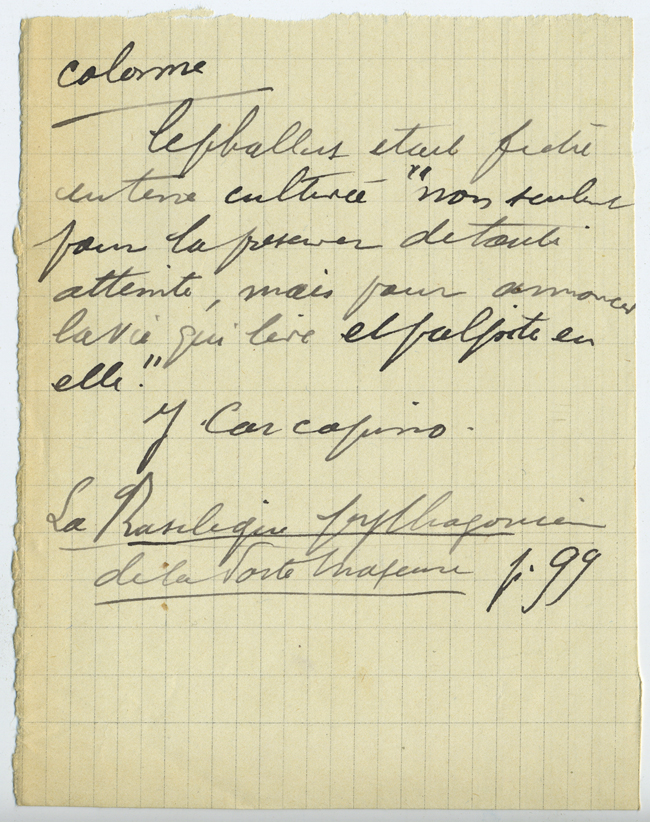 colonne
le phallus etait fiché
en terre cultivée "non seulemt
pour la preserver de toute
atteinte, mais pour annoncer
la vie qui lève et palpite en
elle."
J. Carcopino.
La Basilique pythagoricien
de la Porte Majeure p. 99